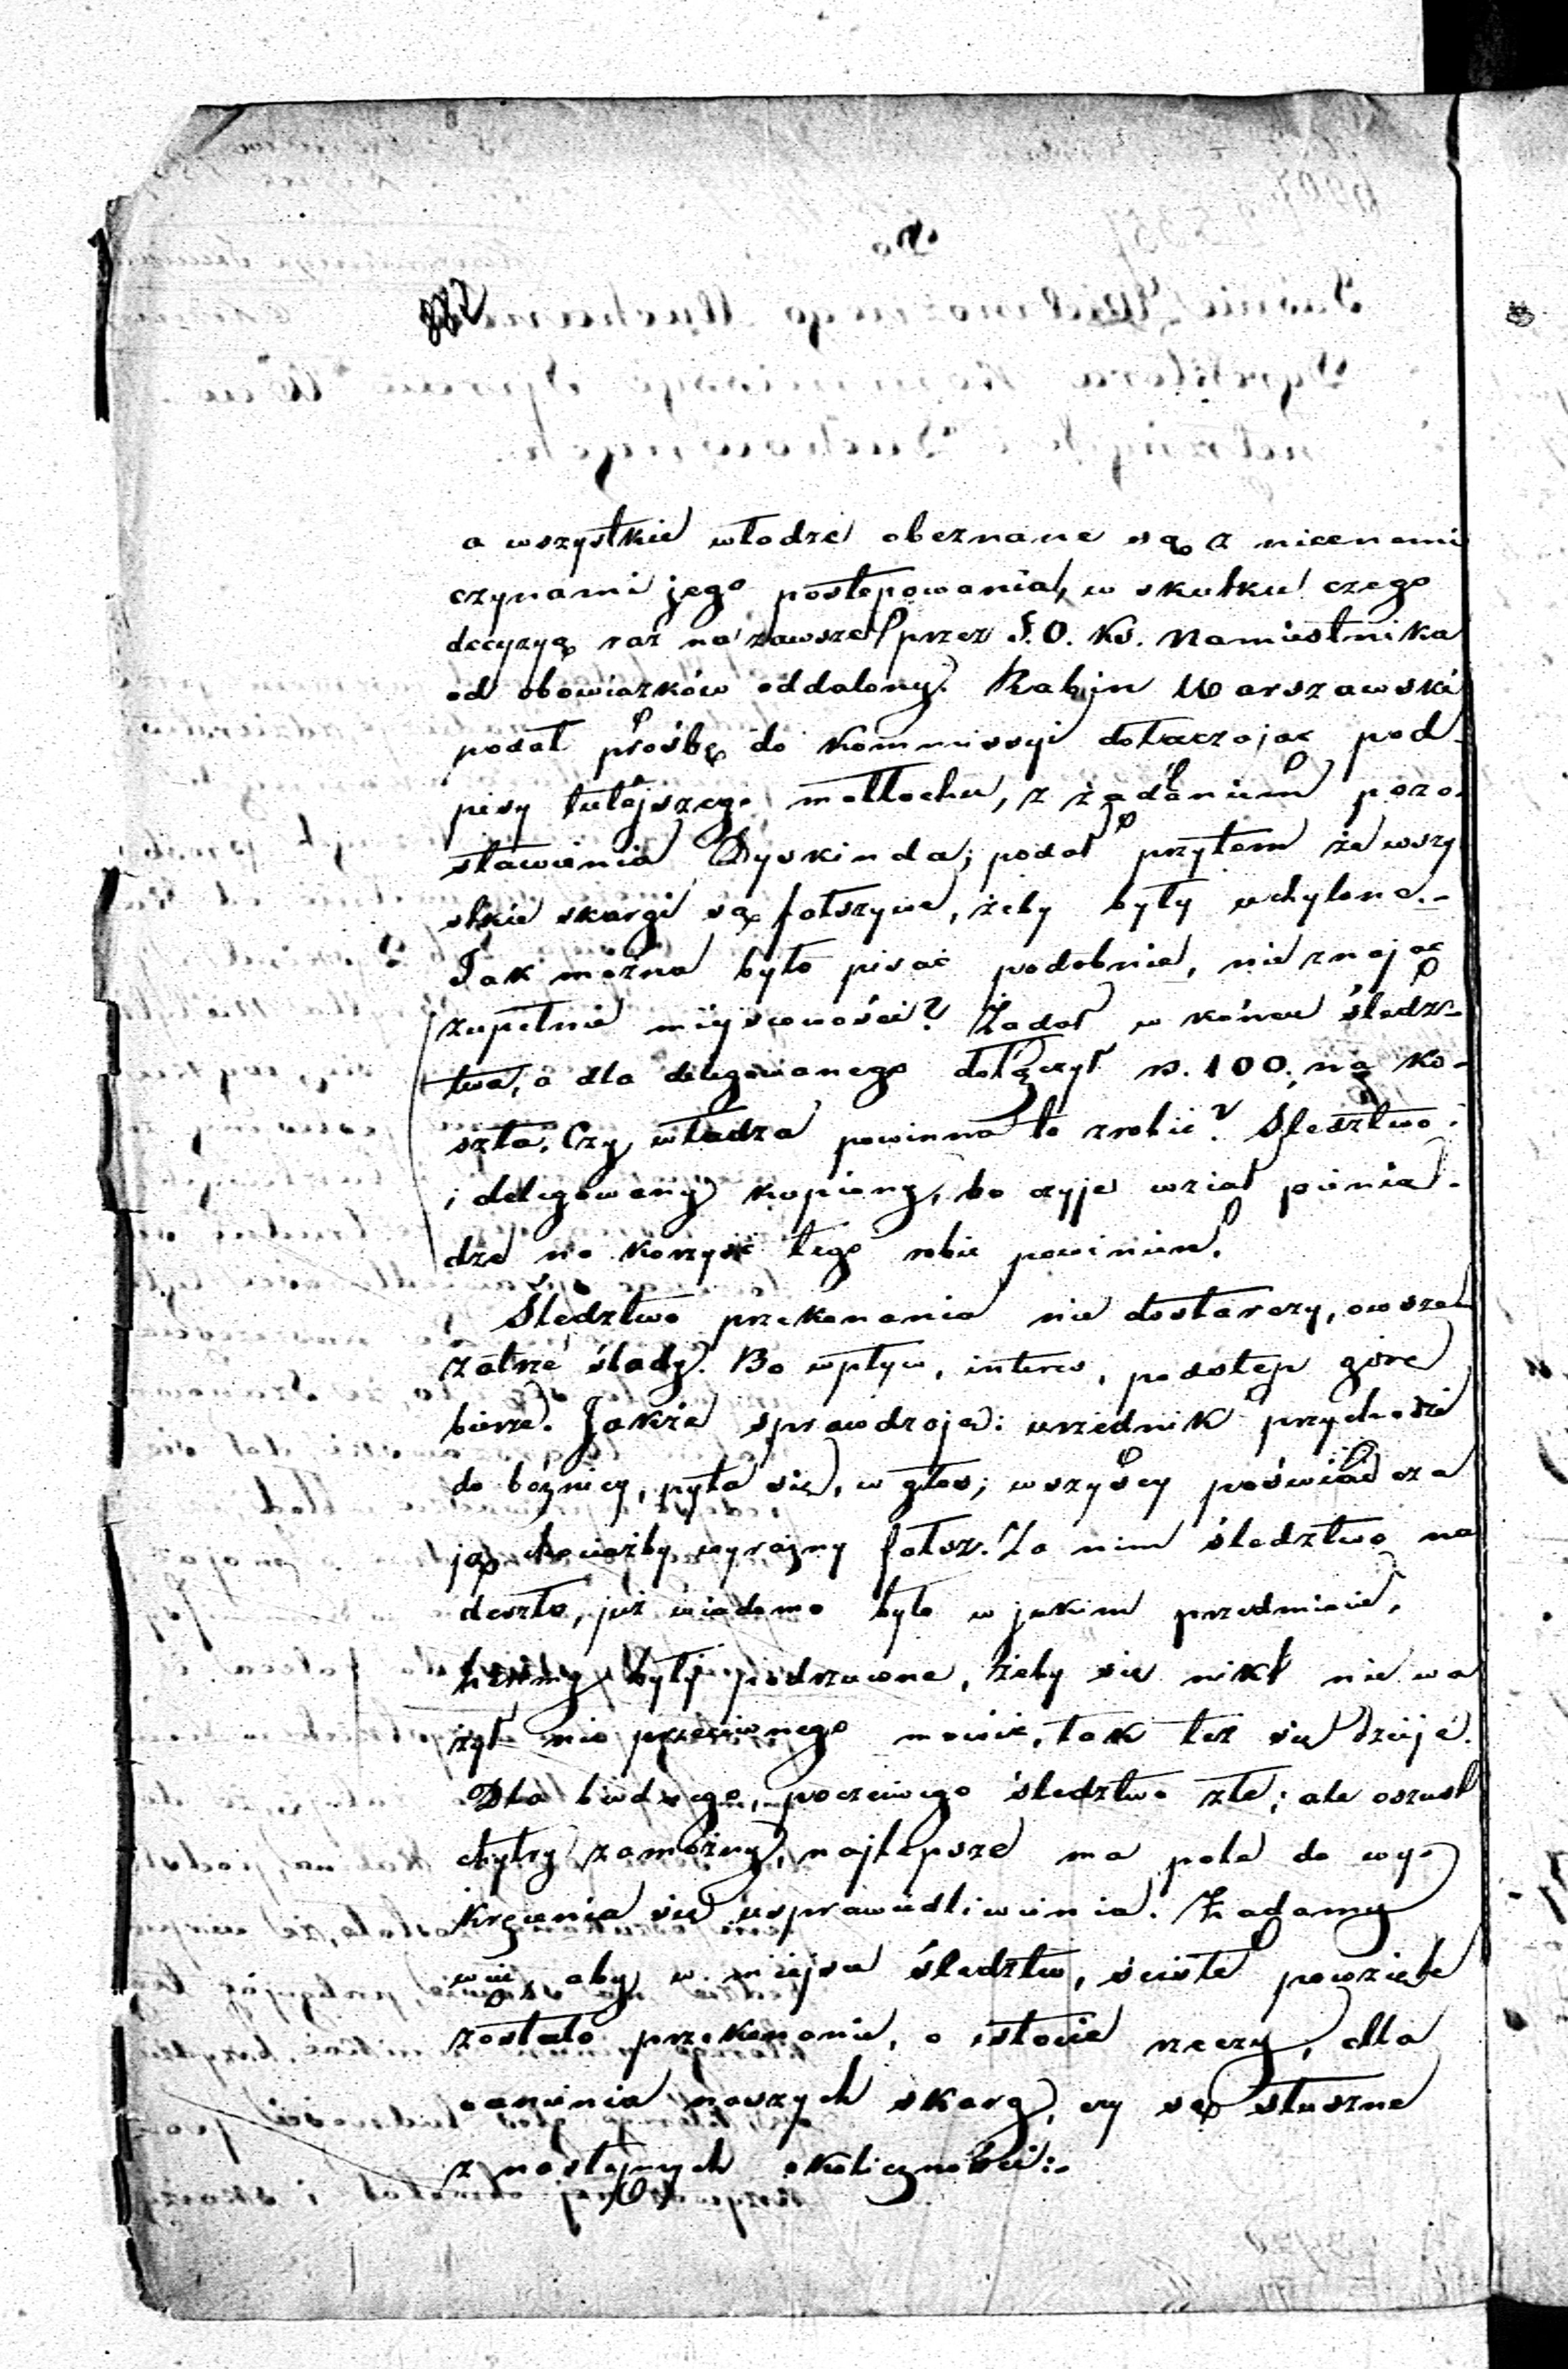 882
a wszystkie włodze obeznane są z nicenemi
czynami jego postepowania, w skutku czego
decyzyą raz na zawsze przez J. O. Ks. Namiestnika
od obowiazków oddalony. Rabin Warszawski
podał prośbę do Kommissyi dołaczajac pod-
pisy tutéjszego mottochu, z żądaniem pozo-
stawienia Dyskinda; podał przytem że wszy
stkie skargi są fałszywe, żeby były uchylone.-
Jak można było pisać podobnie, nie znając
zupełnie miejscowości? Żadał w końcu śledz-
twa, a dla delegowanego dołączył rs. 100. na ko-
szta. Czy władza powinna to zrobić? Sledztwo
i delegowany kupiony, bo czyje wziął pienia-
dze na korzyść tego robić powinien.
Śledztwo przekonania nie dostarczy, owszem
zatrze ślady. Bo wpływ, interes, podstep góre
bierze. Jakże sprawdzają: urzednik przychodzi
do bożnicy, pyta sie, w głos; wszyscy poświadcza
ją chociażby wyrażny fałsz. Za nim śledztwo na
deszło, już wiadomo było w jakim przedmiocie,
były podrzucone, żeby sie nikt nie wa
żył nic przeciwnego mówić, tak też sie dzieje.
Dla biednego, poczciwego śledztwo złe; ale oszust
chytry zamożny, najlepsze ma pole do wy-
kręcenia sie usprawiedliwienia. Żadamy
więc, aby w miejsce śledztw, ściste powziete
zostało przekonanie, o istocie rzeczy, dla
ocenienia naszych skarg, czy są słuszne
z nastepnych okoliczności:-